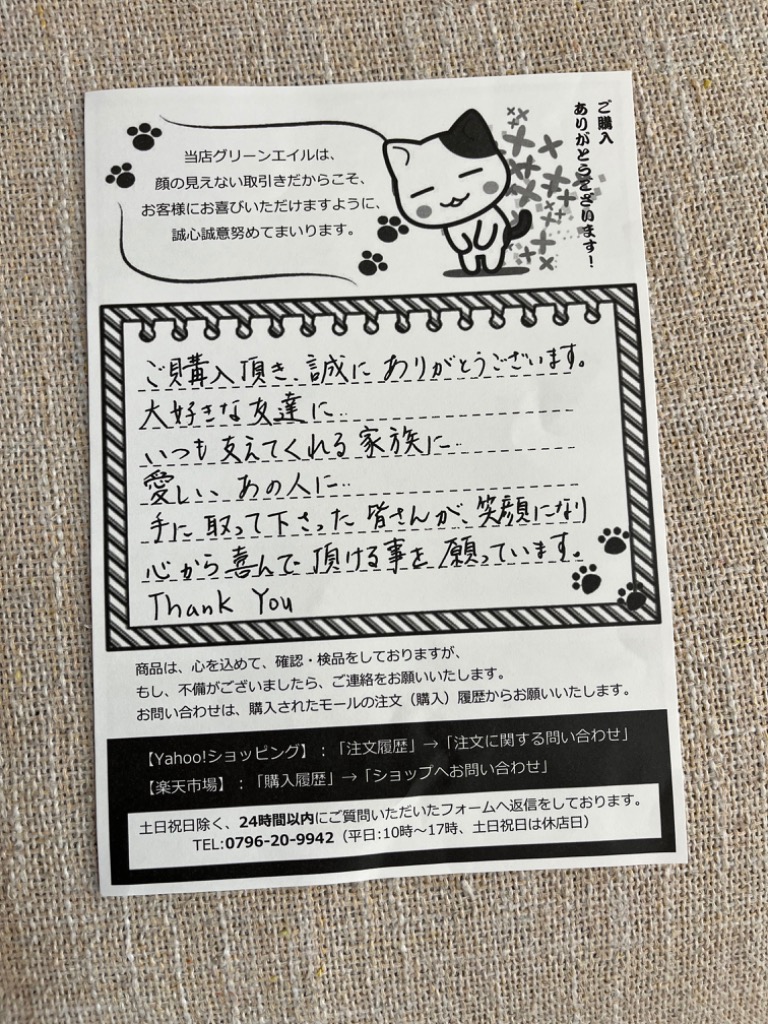 ご購入
ありがとうございます!
当店グリーンエイルは、
顔の見えない取引きだからこそ、
お客様にお喜びいただけますように、
誠心誠意努めてまいります。
ご購入頂き、誠にありがとうございます。
大好きな友達に‥
いつも支えてくれる家族に‥
愛しい、あの人に‥
手に取って下さった皆さんが、笑顔になり
心から喜んで頂ける事を願っています。
Thank You
商品は、心を込めて、確認・検品をしておりますが、
もし、不備がございましたら、ご連絡をお願いいたします。
お問い合わせは、購入されたモールの注文(購入)履歴からお願いいたします。
【Yahoo!ショッピング】:「注文履歴」→「注文に関する問い合わせ」
【楽天市場】:「購入履歴」→「ショップへお問い合わせ」
土日祝日除く、24時間以内にご質問いただいたフォームへ返信をしております。
TEL:0796-20-9942(平日:10時～17時、土日祝日は休店日)